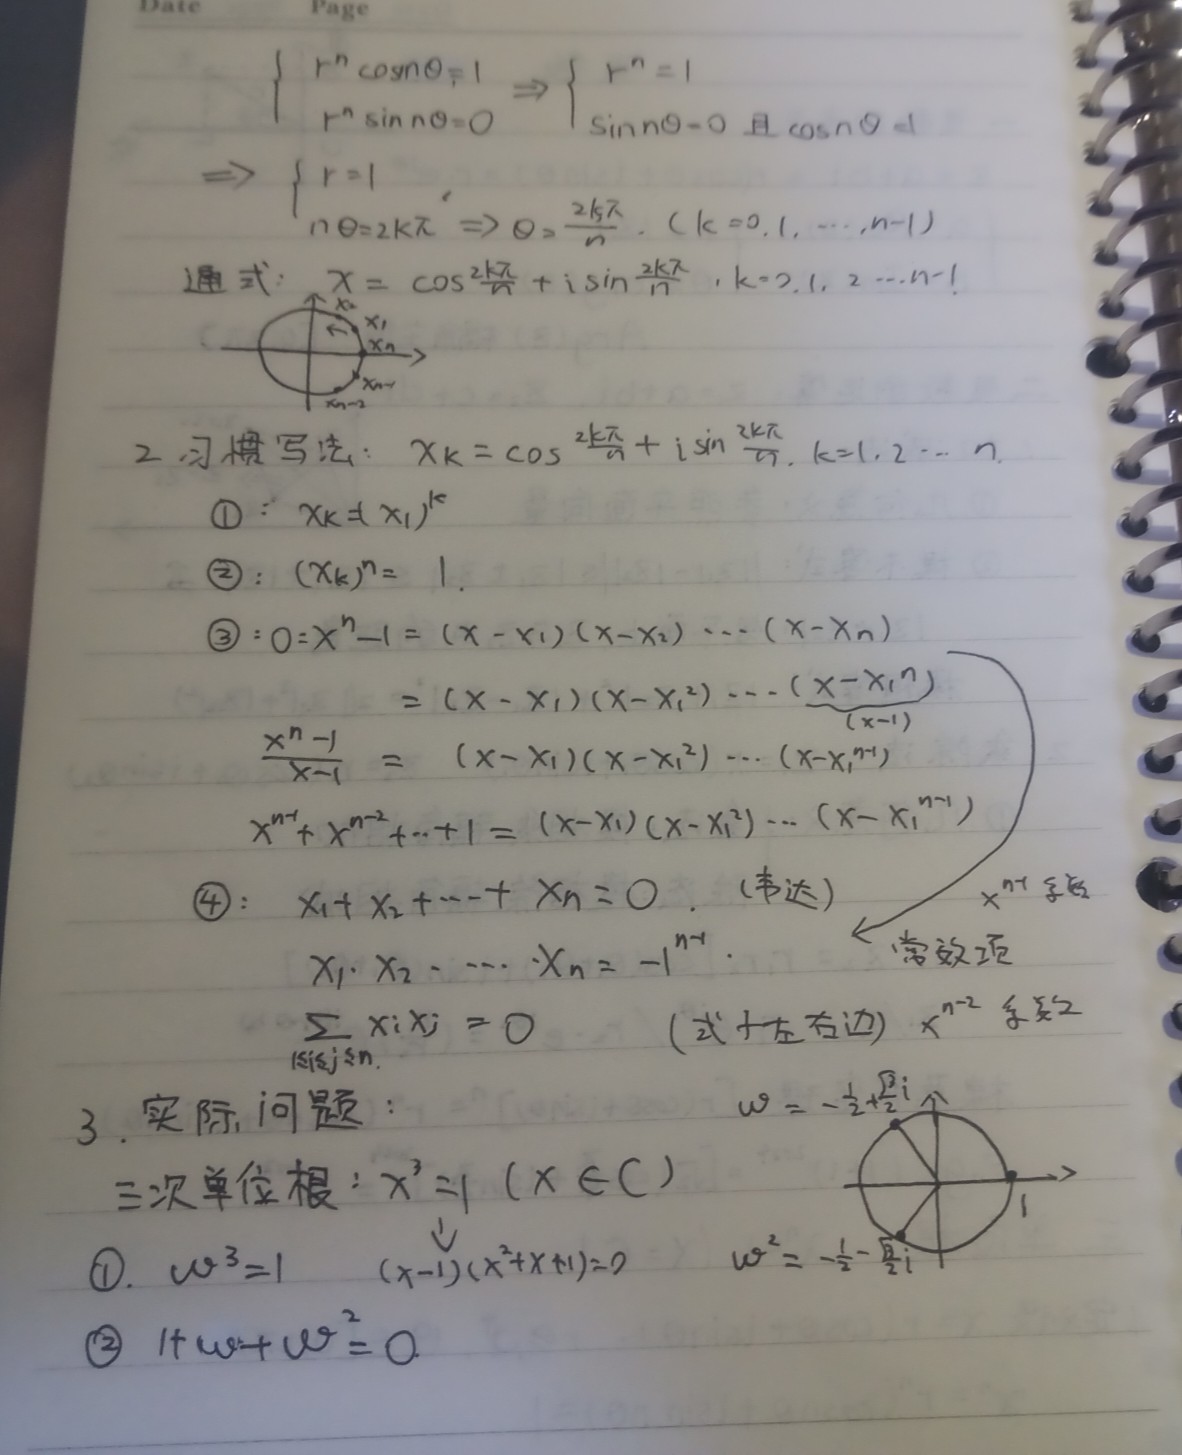 Date Page
{ rⁿcosnθ=1 ⇒ { rⁿ=1
rⁿsinnθ=0 sinnθ=0 且 cosnθ=1
⇒ { r=1
nθ=2kπ ⇒ θ=2kπ/n. (k=0.1. ⋯,n-1)
通式: x = cos 2kπ/n + i sin 2kπ/n , k=0.1. 2 ⋯ n-1.
x₂
x₁
xₙ
xₙ₋₁
xₙ₋₂
2. 习惯写法: xₖ = cos 2kπ/n + i sin 2kπ/n. k=1.2 ⋯ n.
①: xₖ=(x₁)ᵏ
②: (xₖ)ⁿ= 1.
③: 0=xⁿ-1 = (x-x₁)(x-x₂) ⋯ (x-xₙ)
= (x-x₁)(x-x₁²) ⋯ (x-x₁ⁿ)
(x-1)
xⁿ-1/x-1 = (x-x₁)(x-x₁²) ⋯ (x-x₁ⁿ⁻¹)
xⁿ⁻¹+xⁿ⁻²+⋯+1 = (x-x₁)(x-x₁²) ⋯ (x-x₁ⁿ⁻¹)
④: x₁+x₂+⋯+xₙ=0. (韦达) xⁿ⁻¹系数
x₁·x₂·⋯·xₙ = -1ⁿ⁻¹. 常数项
∑ xᵢxⱼ = 0 (式子左右边) xⁿ⁻² 系数
1≤i≤j≤n.
3. 实际问题: w = -1/2+√3/2 i
三次单位根: x³=1 (x∈C) 1
↓
①. w³=1 (x-1)(x²+x+1)=0 w² = -1/2-√3/2 i
② 1+w+w²=0.